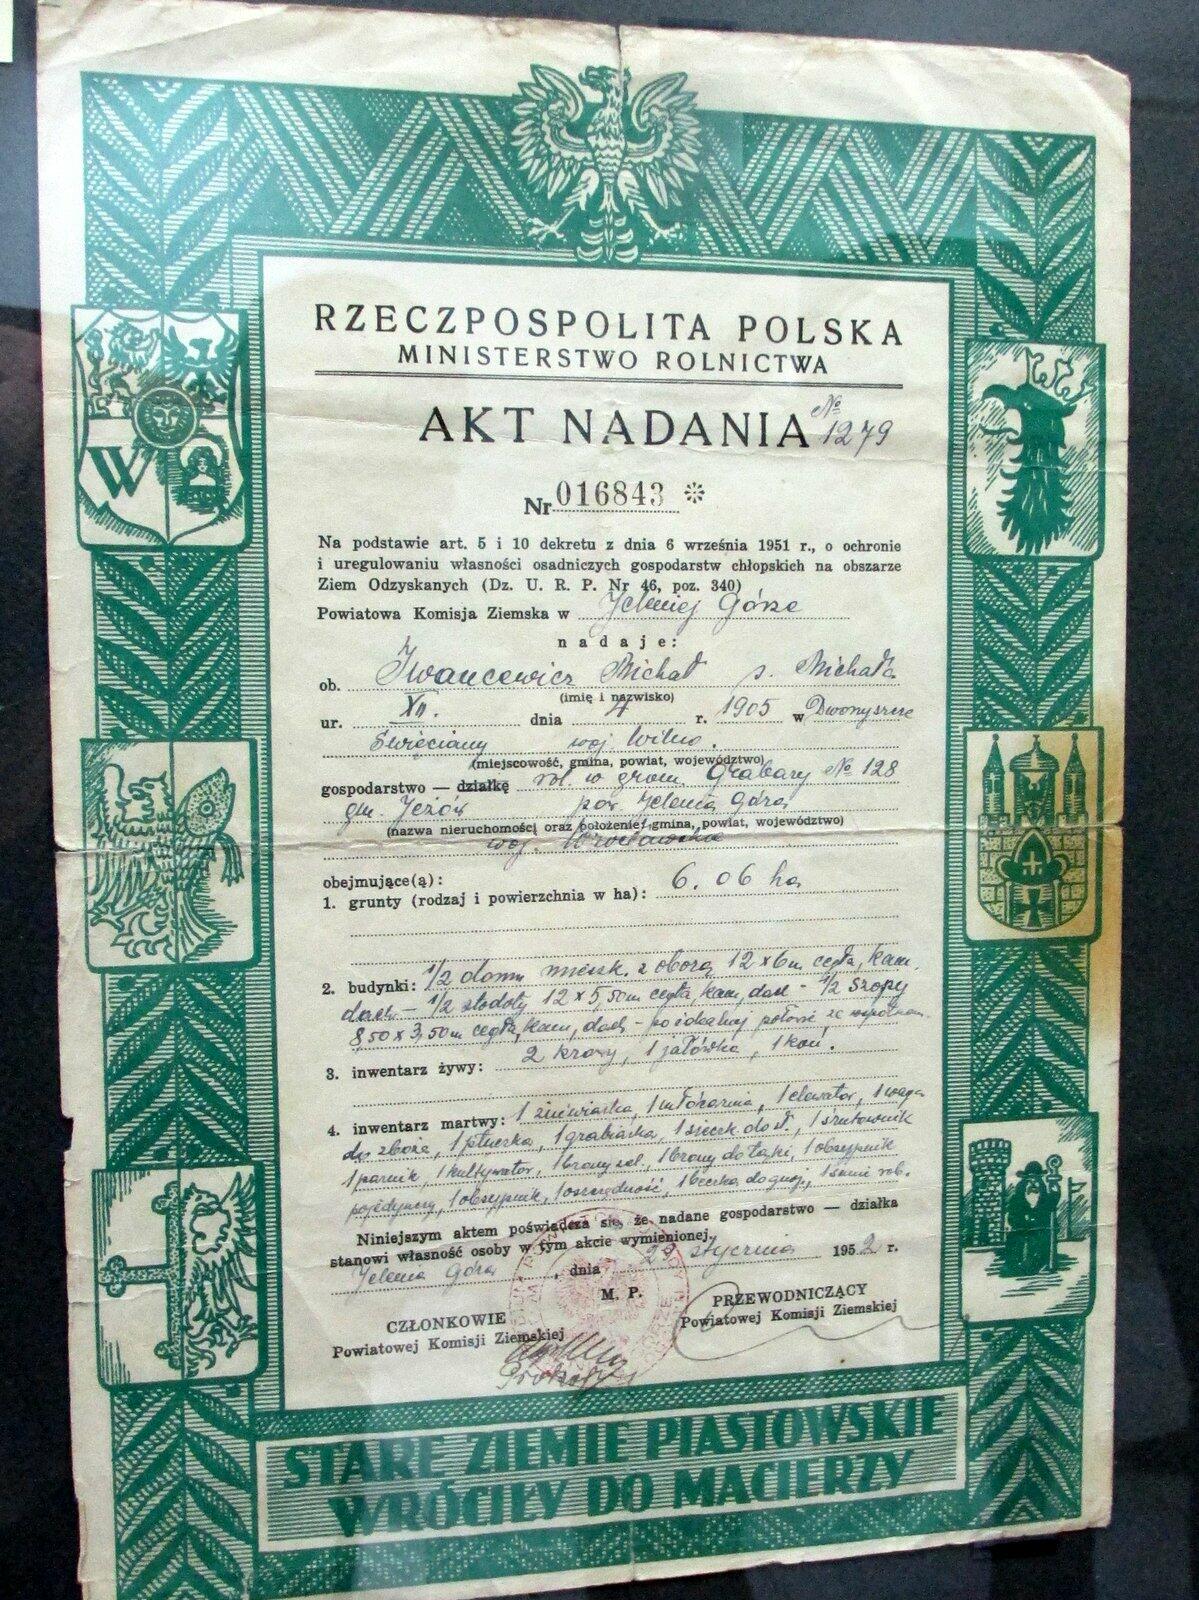 RZECZPOSPOLITA POLSKA
MINISTERSTWO ROLNICTWA
AKT NADANIA № 1279
Nr 016843
Na podstawie art. 5 i 10 dekretu z dnia 6 września 1951 r., o ochronie
i uregulowaniu własności osadniczych gospodarstw chłopskich na obszarze
Ziem Odzyskanych (Dz. U. R. P. Nr 46, poz. 340)
Powiatowa Komisja Ziemska w Jeleniej Górze
nadaje:
ob. Iwancewicz Michał s. Michała
(imię i nazwisko)
ur. XII. dnia 4 r. 1905 w
Święciany woj. Wilno.
(miejscowość, gmina, powiat, województwo)
gospodarstwo — działkę rol. w grom. Grabary № 128
gm. Jeżów pow. Jelenia Góra
(nazwa nieruchomości oraz położenie gmina, powiat, województwo)
woj. Wrocławskie
obejmujące(a):
1. grunty (rodzaj i powierzchnia w ha): 6.06 ha
2. budynki: 1/2 domu mieszk. z oborą 12 x 6m cegła, kam,
dach – 1/2 stodoły 12 x 5,50m cegła, kam, dach – 1/2 szopy
8,50 x 3,50m cegła, kam, dach – po idealnej połowie ze
3. inwentarz żywy: 2 krowy, 1 jałówka, 1 koń.
4. inwentarz martwy: 1 żniwiarka, 1 młócarnia, 1 elewator, 1 waga
do zboża, 1 płuczka, 1 grabiarka, 1 siecz. do sł., 1 śrutownik
1 parnik, 1 kultywator, 1 brony 1 brony do łąki, 1 obsypnik
pojedynczy, 1 obsypnik, 1 beczka do gnoj., 1 sanie rob.
Niniejszym aktem poświadcza się, że nadane gospodarstwo — działka
stanowi własność osoby w tym akcie wymienionej.
Jelenia Góra, dnia 29 stycznia 1952 r.
M. P.
CZŁONKOWIE
Powiatowej Komisji Ziemskiej
PRZEWODNICZĄCY
Powiatowej Komisji Ziemskiej
W
STARE ZIEMIE PIASTOWSKIE
WRÓCIŁY DO MACIERZY